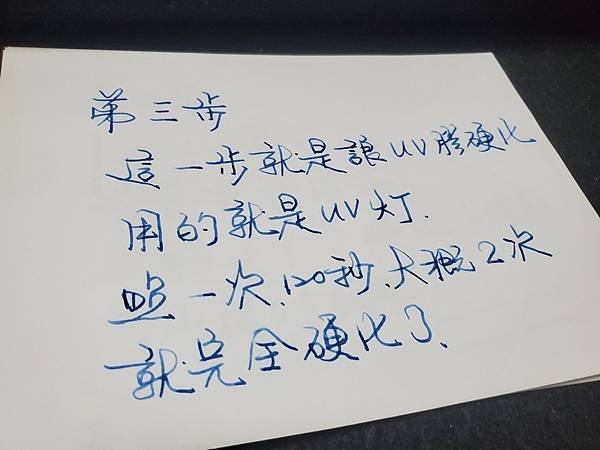 第三步
這一步就是讓UV膠硬化
用的就是UV灯.
照一次、120秒、大概2次
就完全硬化了、